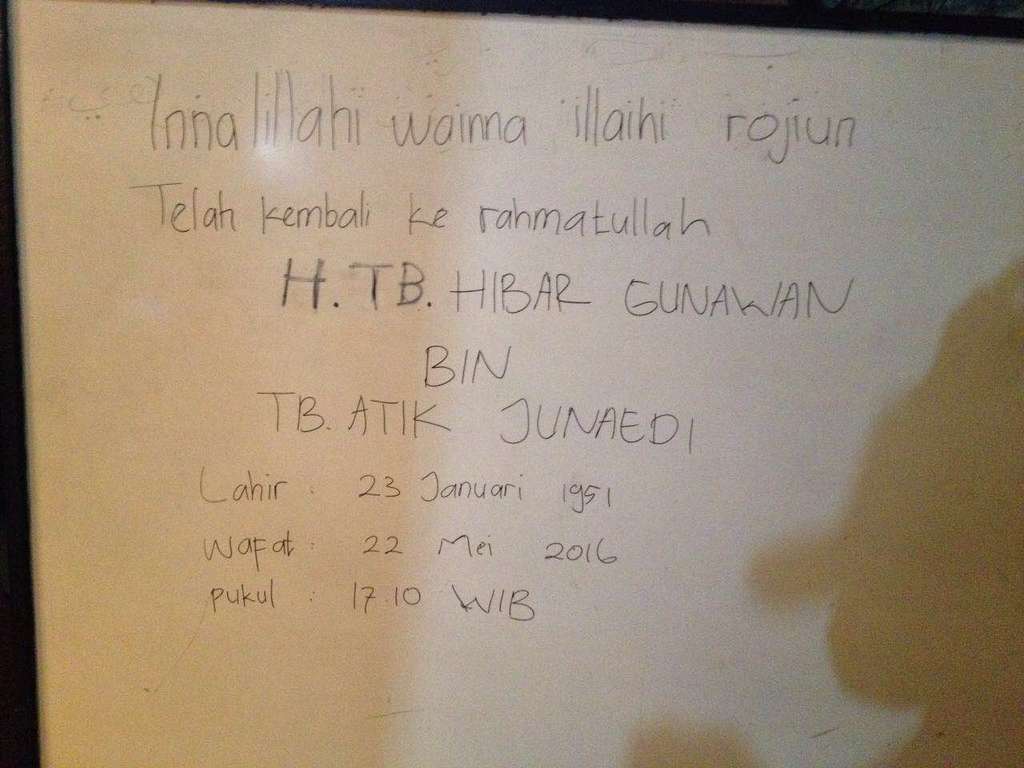 Innalillahi wainna illaihi rojiun
Telah kembali ke rahmatullah
H. TB. HIBAR GUNAWAN
BIN
TB. ATIK JUNAEDI
Lahir : 23 Januari 1951
Wafat : 22 Mei 2016
pukul : 17.10 WIB